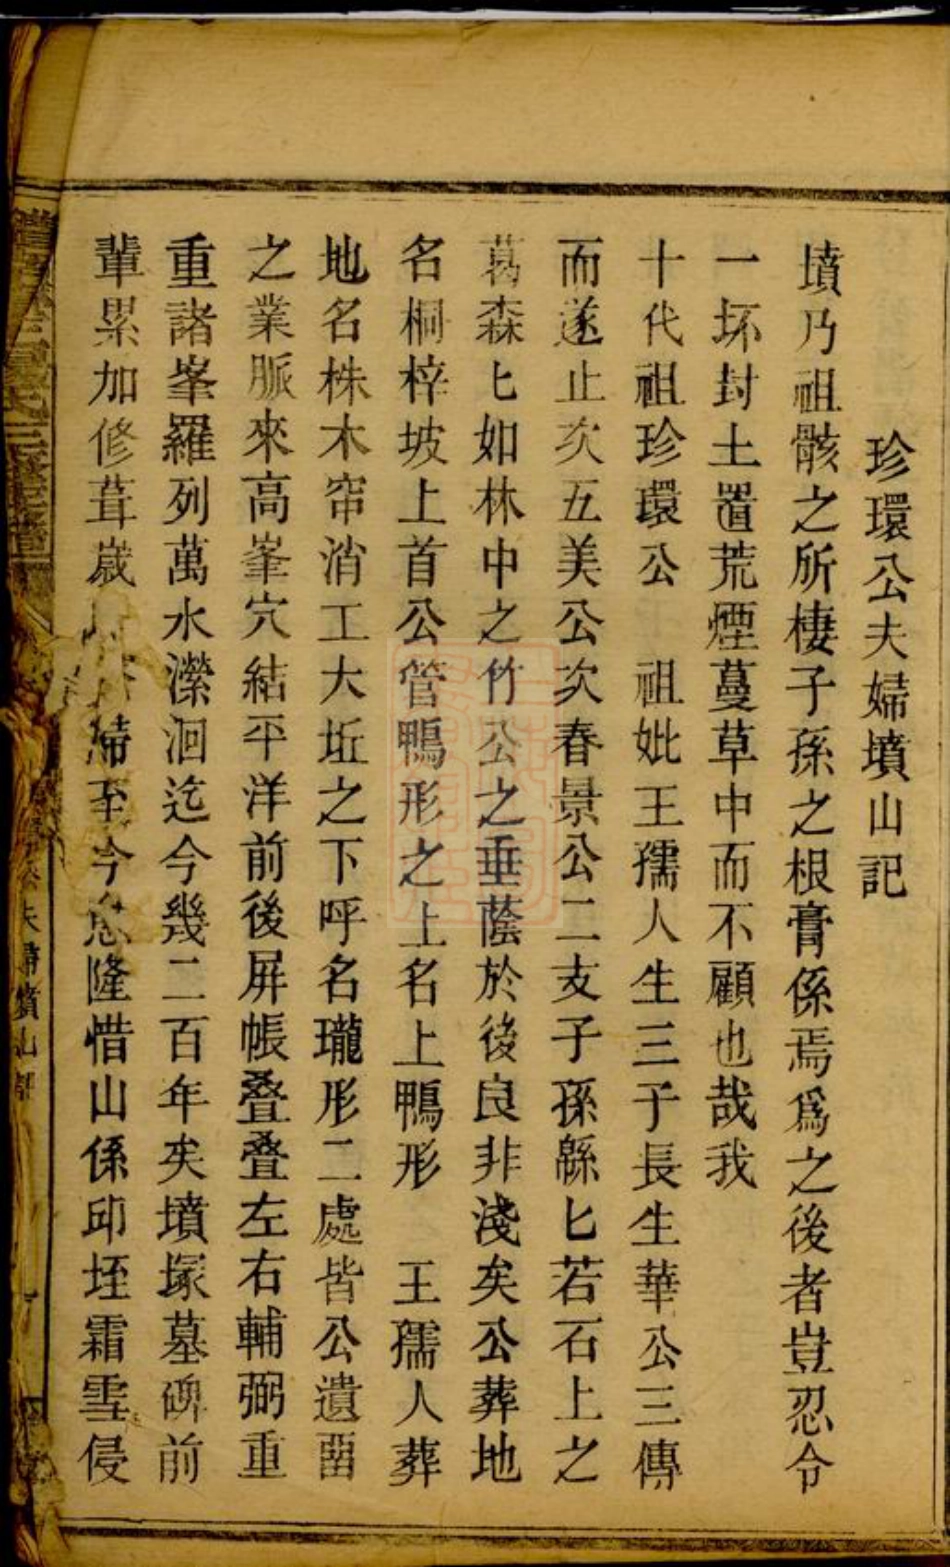 珍環公夫婦墳山記
墳乃祖骸之所棲子孫之根膏係焉爲之後者豈忍令
一坏封土置荒煙蔓草中而不顧也哉我
十代祖珍環公　祖妣王孺人生三子長生華公三傳
而遂止次五美公次春景公二支子孫緜匕若石上之
葛森匕如林中之竹公之垂蔭於後良非淺矣公葬地
名桐梓坡上首公管鴨形之上名上鴨形　王孺人葬
地名株木帘消工大坵之下呼名瓏形二處皆公遺畱
之業脈來高峯穴結平洋前後屏帳叠叠左右輔弼重
重諸峯羅列萬水瀠洄迄今幾二百年矣墳塚墓碑前
輩累加修葺歲掃至今愈隆惜山係邱垤霜雪侵
夫婦墳山記